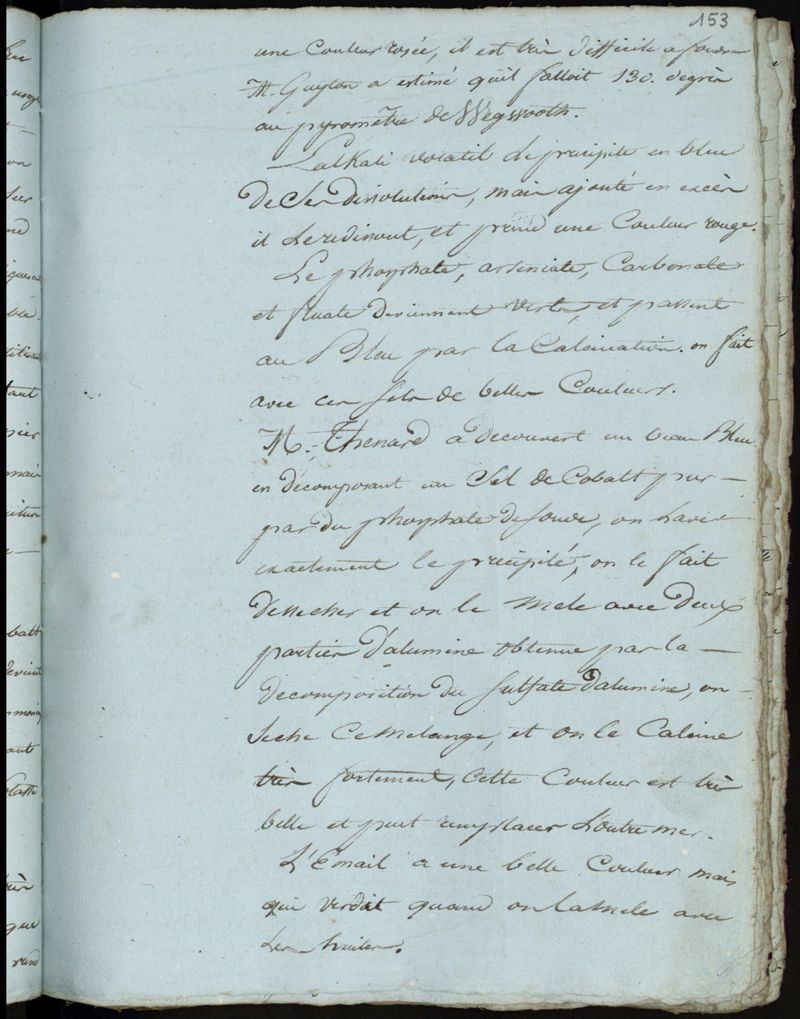 153
une couleur rosée, il est très difficile a fondre
M. Guyton a estimé qu'il falloit 130 degrés
au pyromètre de Wegwooth.
L'alkali volatil le precipite en bleu
de ses dissolutions, mais ajouté en excès
il le redissout, et prend une Couleur rouge.
Le phosphate, arseniate, Carbonate
et fluate deviennent verts, et passent
au Bleu par la Calcination. on fait
avec ces sels de belles Couleurs.
M. Thenard a decouvert un beau Bleu
en decomposant un Sel de Cobalt pur —
par du phosphate de soude, on lave
exactement le précipité, on le fait
dessecher et on le mele avec deux
parties d'alumine obtenue par la —
decomposition du sulfate d'alumine, on
seche ce melange, et on le Calcine
très fortement, cette couleur est très
belle et peut remplacer l'outremer.
L'Email a une belle Couleur mais
qui verdit quand on la mele avec
les huiles.